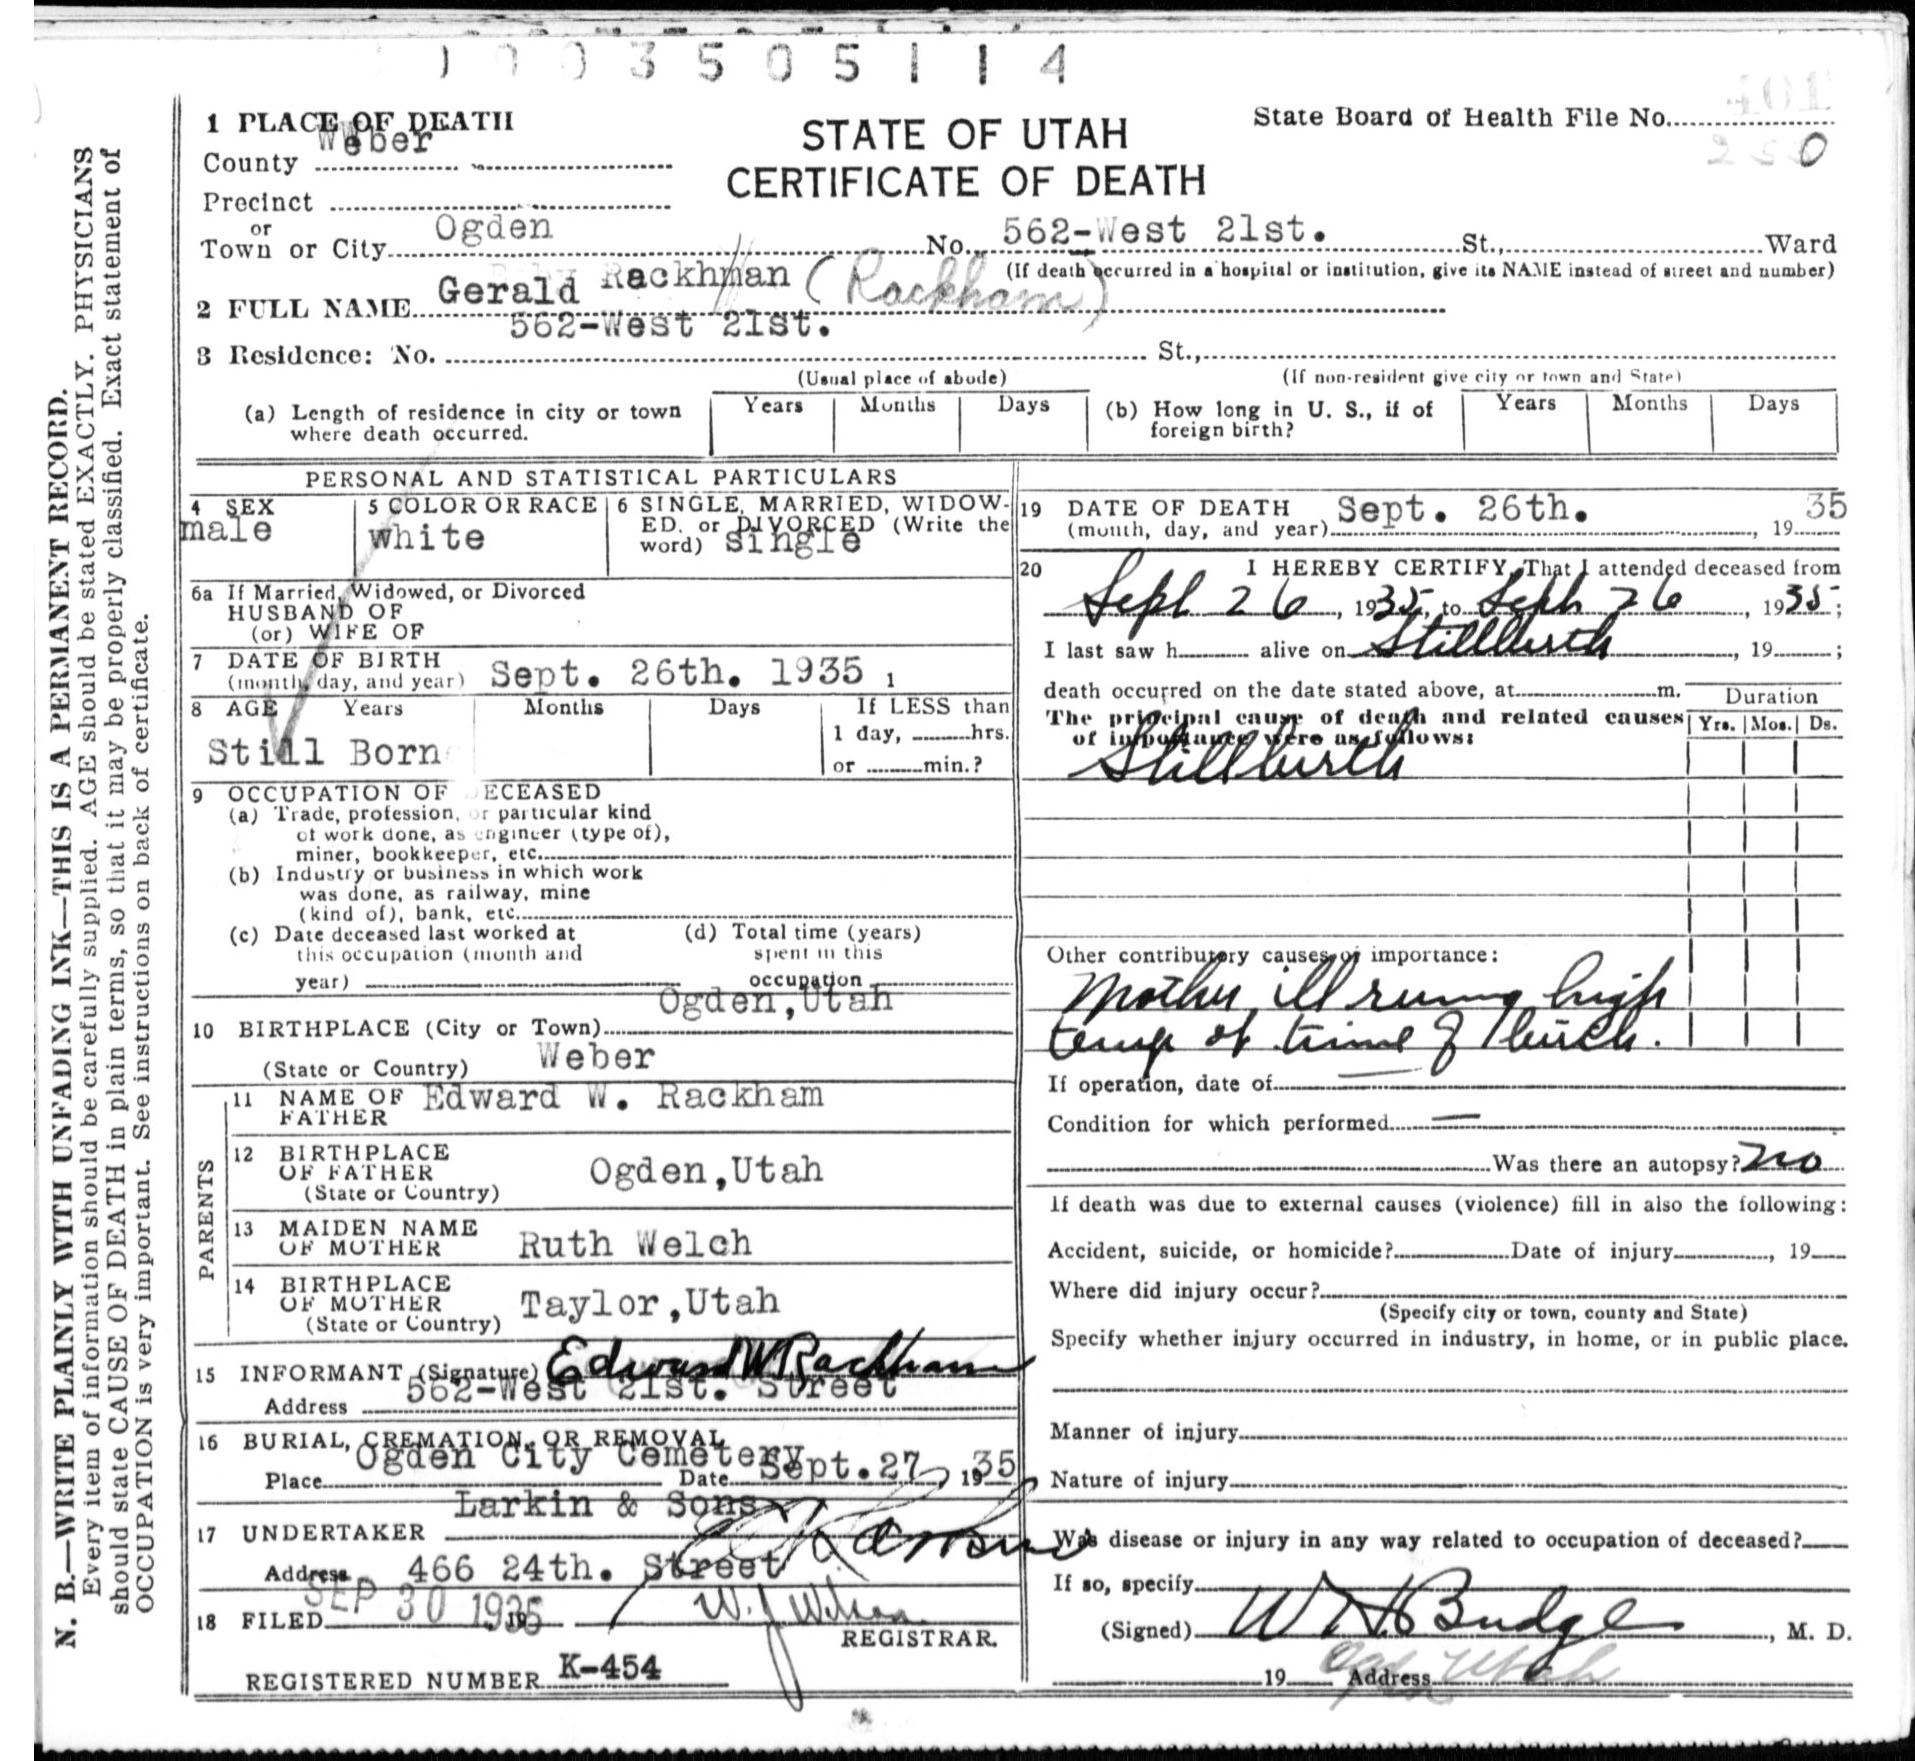 3 5 0 5 1 1 4
401
1 PLACE OF DEATH
County Weber
STATE OF UTAH
CERTIFICATE OF DEATH
State Board of Health File No.
Precinct
or
Town or City Ogden No. 562-West 21st. St., Ward
(If death occurred in a hospital or institution, give its NAME instead of street and number)
2 FULL NAME Gerald Rackhman (Rackham)
3 Residence: No. 562-West 21st. St.,
(Usual place of abode) (If non-resident give city or town and State)
(a) Length of residence in city or town where death occurred. Years Months Days (b) How long in U. S., if of foreign birth? Years Months Days
PERSONAL AND STATISTICAL PARTICULARS
4 SEX male
5 COLOR OR RACE white
6 SINGLE, MARRIED, WIDOW-
ED, or DIVORCED (Write the
word) single
6a If Married, Widowed, or Divorced
HUSBAND OF
(or) WIFE OF
7 DATE OF BIRTH
(month, day, and year) Sept. 26th. 1935 1
8 AGE Years Months Days If LESS than
1 day, hrs.
or min.?
Still Born
9 OCCUPATION OF DECEASED
(a) Trade, profession, or particular kind
of work done, as engineer (type of),
miner, bookkeeper, etc.
(b) Industry or business in which work
was done, as railway, mine
(kind of), bank, etc.
(c) Date deceased last worked at
this occupation (month and
year)
(d) Total time (years)
spent in this
occupation
10 BIRTHPLACE (City or Town) Ogden,Utah
(State or Country) Weber
PARENTS
11 NAME OF
FATHER Edward W. Rackham
12 BIRTHPLACE
OF FATHER
(State or Country) Ogden,Utah
13 MAIDEN NAME
OF MOTHER Ruth Welch
14 BIRTHPLACE
OF MOTHER
(State or Country) Taylor,Utah
15 INFORMANT (Signature) Edward W Rackham
Address 562-West 21st. Street
16 BURIAL, CREMATION, OR REMOVAL
Place Ogden City Cemetery Date Sept.27, 1935
17 UNDERTAKER Larkin & Sons
Address 466 24th. Street
18 FILED SEP 30 1935 19 W. J. Wilson
REGISTRAR.
REGISTERED NUMBER K-454
19 DATE OF DEATH
(month, day, and year) Sept. 26th. , 1935
20 I HEREBY CERTIFY, That I attended deceased from
Sept 26, 1935, to Sept 26, 1935;
I last saw h alive on Stillbirth, 19 ;
death occurred on the date stated above, at m.
The principal cause of death and related causes
of importance were as follows:
Duration
Yrs. Mos. Ds.
Stillbirth
Other contributory causes of importance:
Mother ill runing high
temp at time of birth.
If operation, date of
Condition for which performed
Was there an autopsy? no
If death was due to external causes (violence) fill in also the following:
Accident, suicide, or homicide? Date of injury , 19
Where did injury occur?
(Specify city or town, county and State)
Specify whether injury occurred in industry, in home, or in public place.
Manner of injury
Nature of injury
Was disease or injury in any way related to occupation of deceased?
If so, specify
(Signed) W H Budge , M. D.
19 Address Ogden Utah
N. B.—WRITE PLAINLY WITH UNFADING INK—THIS IS A PERMANENT RECORD.
Every item of information should be carefully supplied. AGE should be stated EXACTLY. PHYSICIANS
should state CAUSE OF DEATH in plain terms, so that it may be properly classified. Exact statement of
OCCUPATION is very important. See instructions on back of certificate.